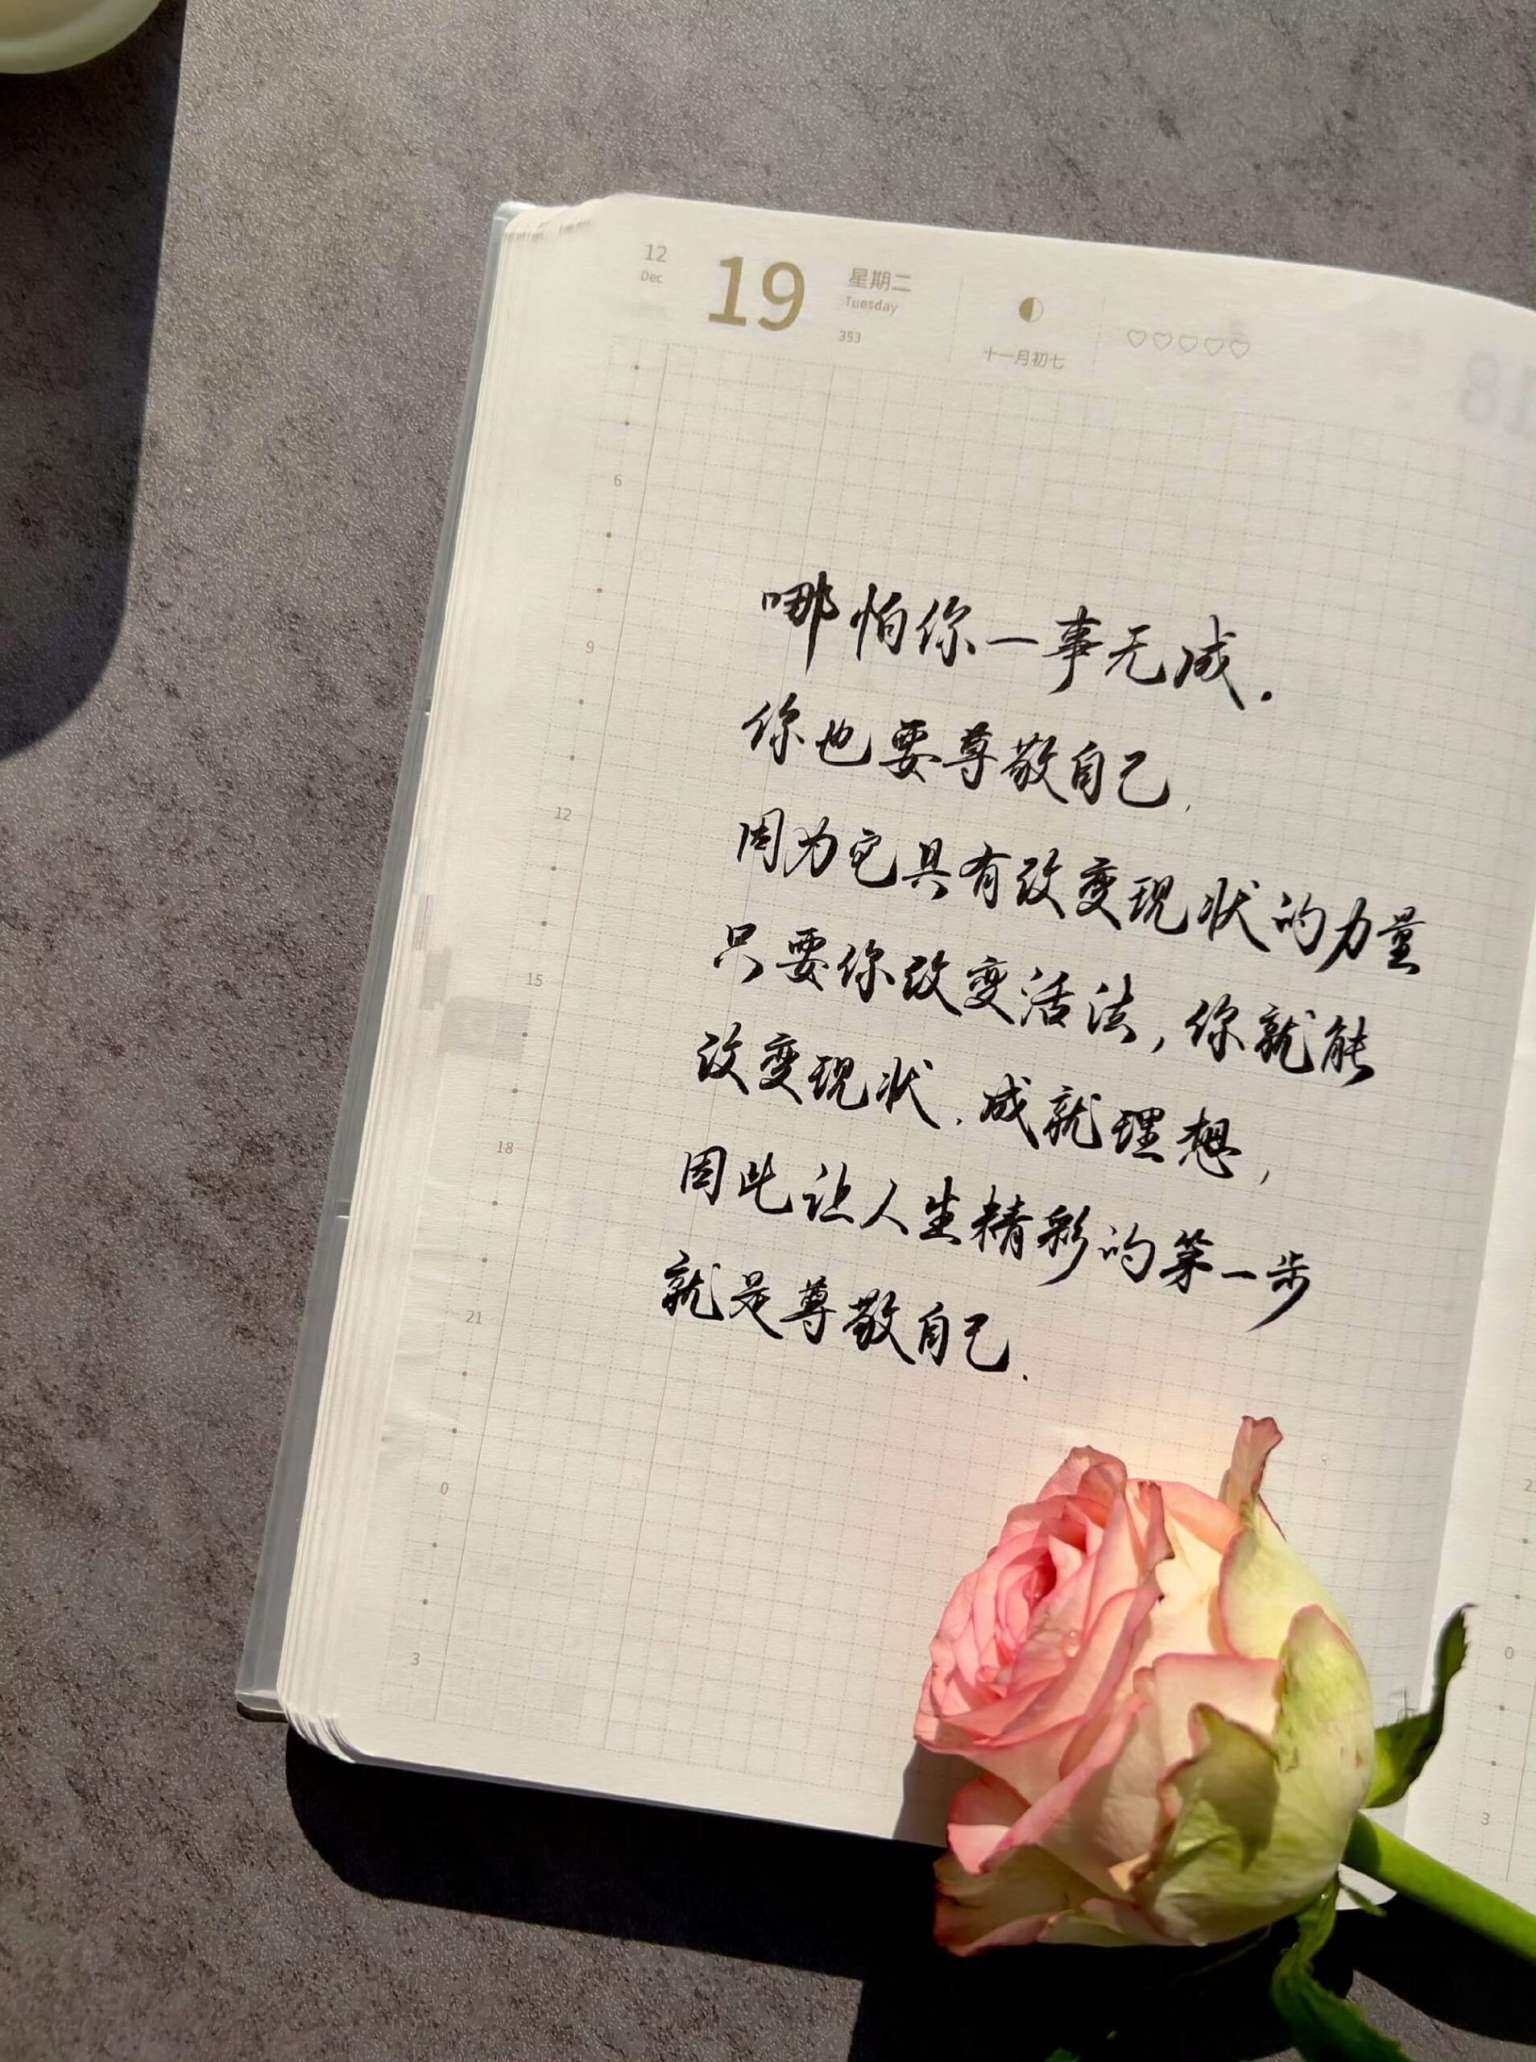 12
Dec
19
星期二
Tuesday
353
十一月初七
18
6
9
12
15
18
21
0
3
哪怕你一事无成.
你也要尊敬自己,
因为它具有改变现状的力量
只要你改变活法,你就能
改变现状.成就理想,
因此让人生精彩的第一步
就是尊敬自己.
2
0
3